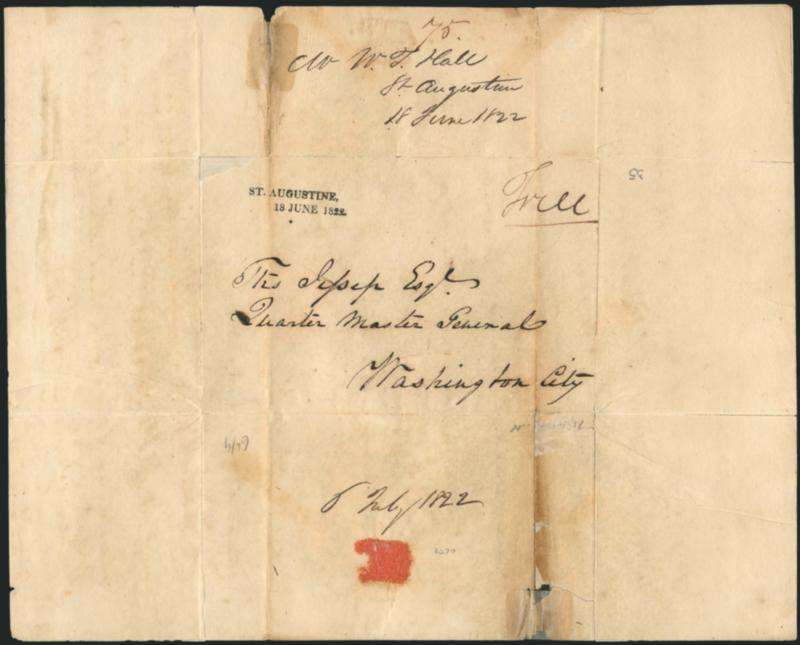 75.
Mr W. T. Hall
St Augustine
18 June 1822
ST. AUGUSTINE,
18 JUNE 1822.
Free
Ths Jessep Esqr.
Quarter Master General
Washington City
6 July 1822